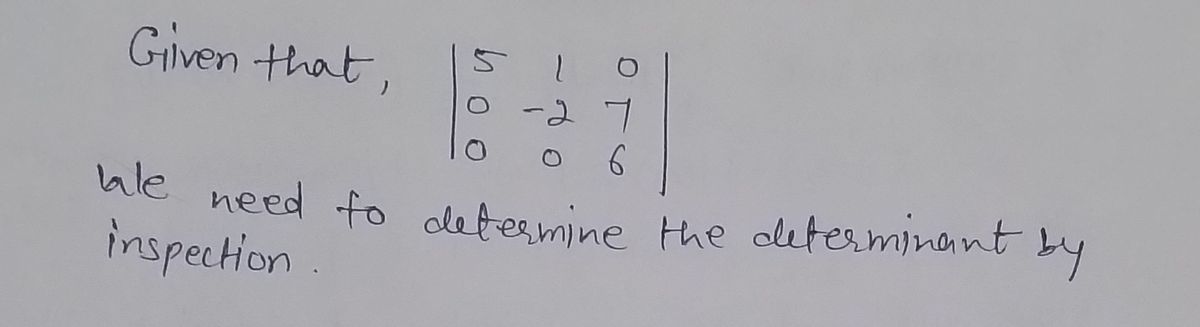 Given that, | 5 1 0 |
| 0 -2 7 |
| 0 0 6 |
We need to determine the determinant by
inspection.